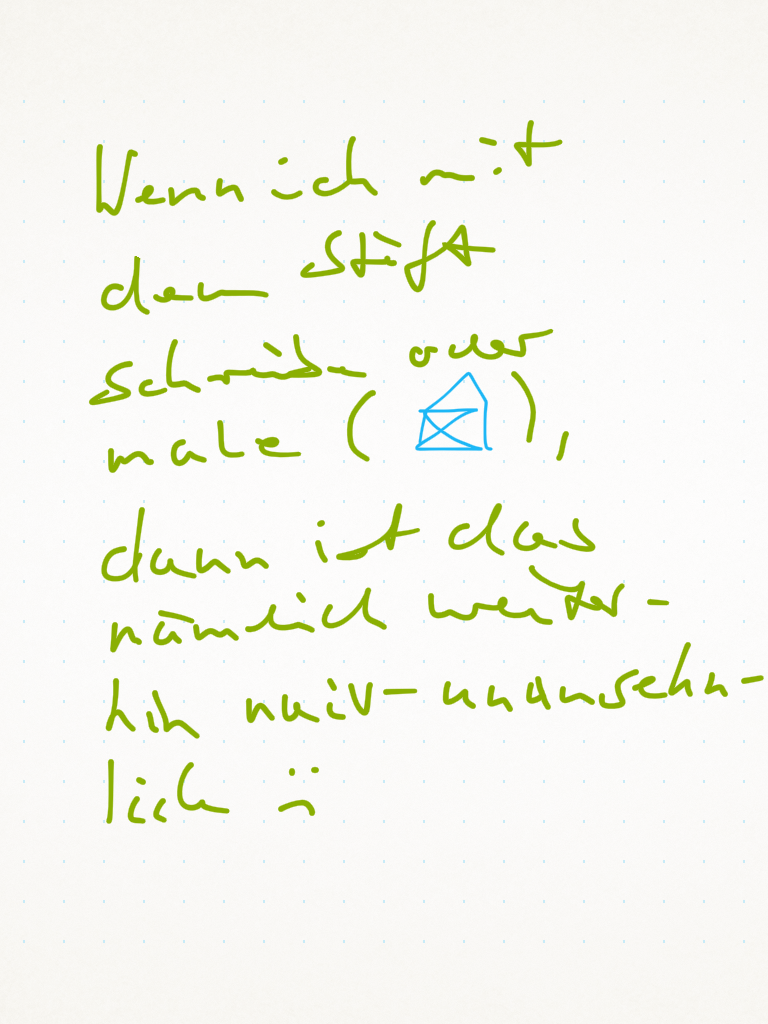 Wenn ich mit
dem Stift
schreibe oder
male ( ),
dann ist das
nämlich weiter-
hin naiv-unansehn-
lich :(